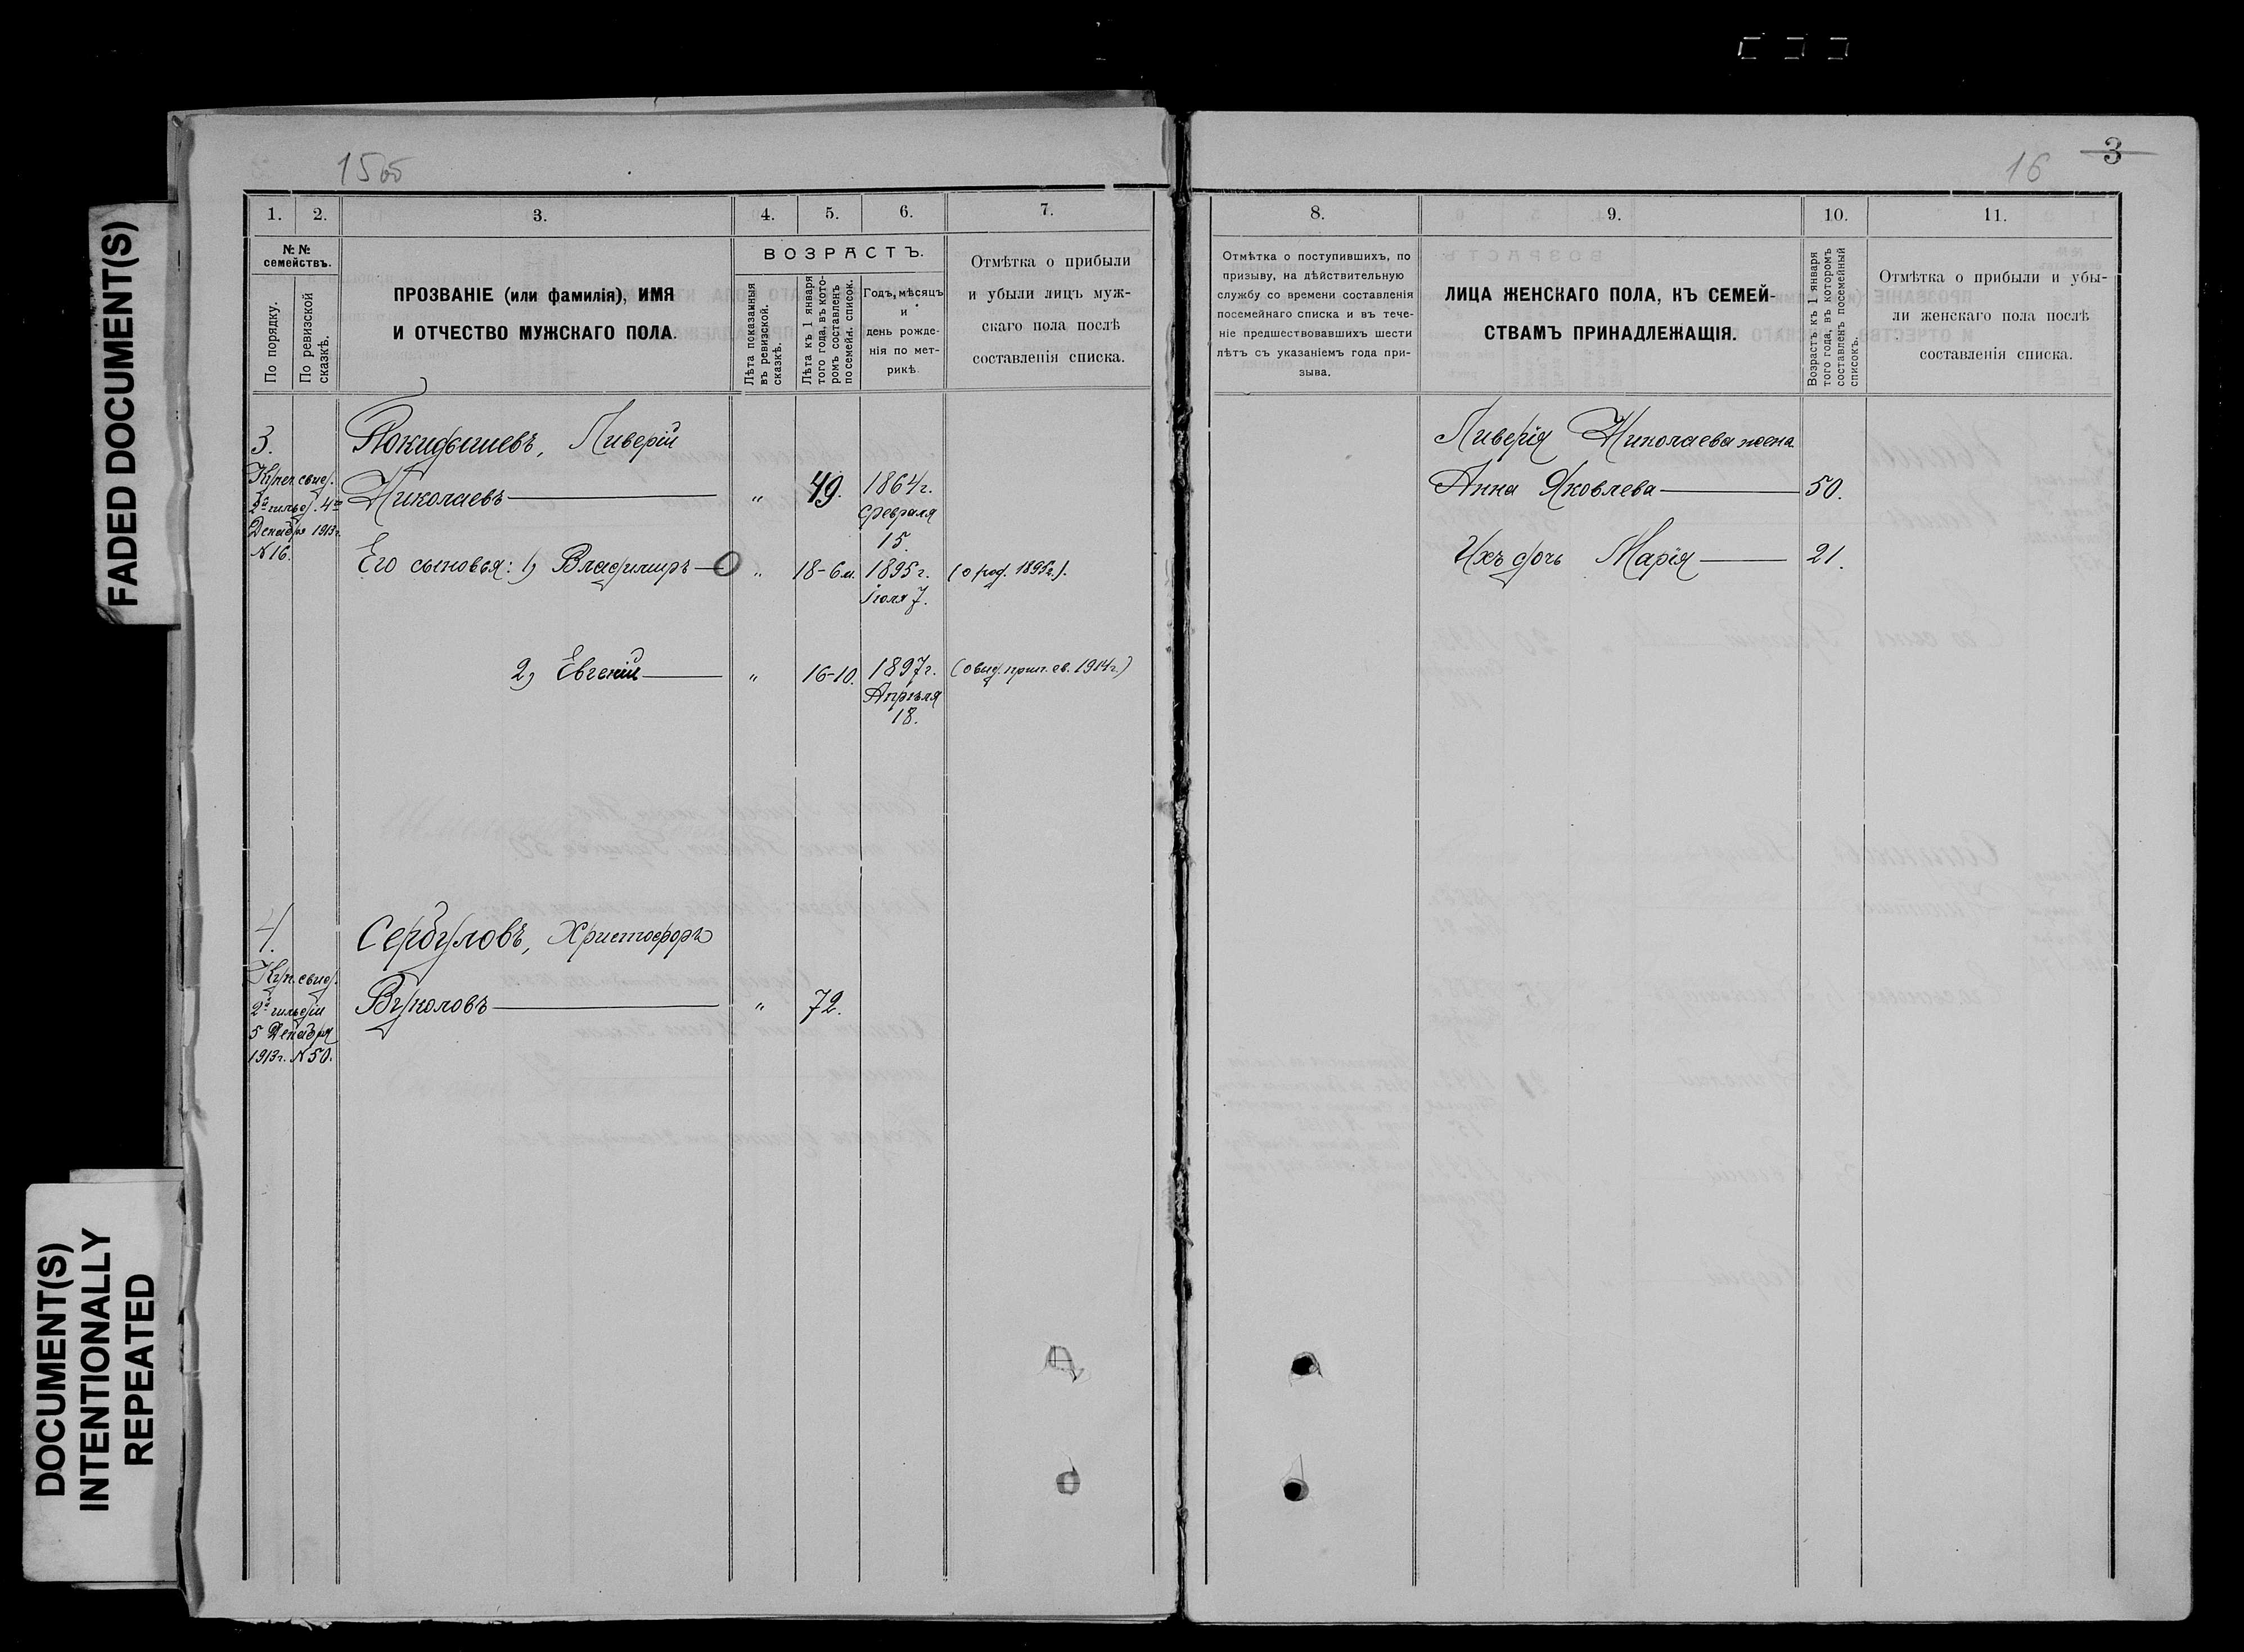 15 об
16
3
FADED DOCUMENT(S)
DOCUMENT(S)
INTENTIONALLY
REPEATED
1. 2. 3. 4. 5. 6. 7.
№ №
семействъ.
По порядку.
По ревизской
сказкѣ.
ПРОЗВАНІЕ (или фамилія), ИМЯ
И ОТЧЕСТВО МУЖСКАГО ПОЛА.
ВОЗРАСТЪ.
Лѣта показанныя
въ ревизской.
сказкѣ.
Лѣта къ 1 января
того года, въ кото-
ромъ составленъ
посемейн. список.
Годъ, мѣсяцъ
и
день рожде-
нія по мет-
рикѣ
Отмѣтка о прибыли
и убыли лицъ муж-
скаго пола послѣ
составленія списка.
3.
Купеч. свид.
2й гильд. 4го
Декабря 1913г.
№ 16.
Ливерій
Николаевъ „ 49. 1864г.
Февраля
15.
Его сыновья: 1, Владиміръ „ 18-6м. 1895г. (о род. 1895г.).
Іюля 7.
2, Евгеній „ 16-10. 1897г. (о вид. прип. св. 1914г.)
Апрѣля
18.
4.
Куп. свид.
2й гильдіи
5 Декабря
1913г. № 50.
Сербуловъ, Христофоръ
Вуколовъ „ 72.
8. 9. 10. 11.
Отмѣтка о поступившихъ, по
призыву, на дѣйствительную
службу со времени составленія
посемейнаго списка и въ тече-
ніе предшествовавшихъ шести
лѣтъ съ указаніемъ года при-
зыва.
ЛИЦА ЖЕНСКАГО ПОЛА, КЪ СЕМЕЙ-
СТВАМЪ ПРИНАДЛЕЖАЩІЯ.
Возрастъ къ 1 января
того года, въ которомъ
составленъ посемейный
списокъ.
Отмѣтка о прибыли и убы-
ли женскаго пола послѣ
составленія списка.
Ливерія Николаева жена
Анна Яковлева 50.
Ихъ дочь Марія 21.